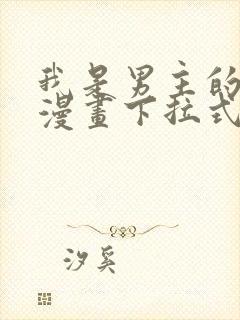 我是男主的
漫畫下拉式
汐奚